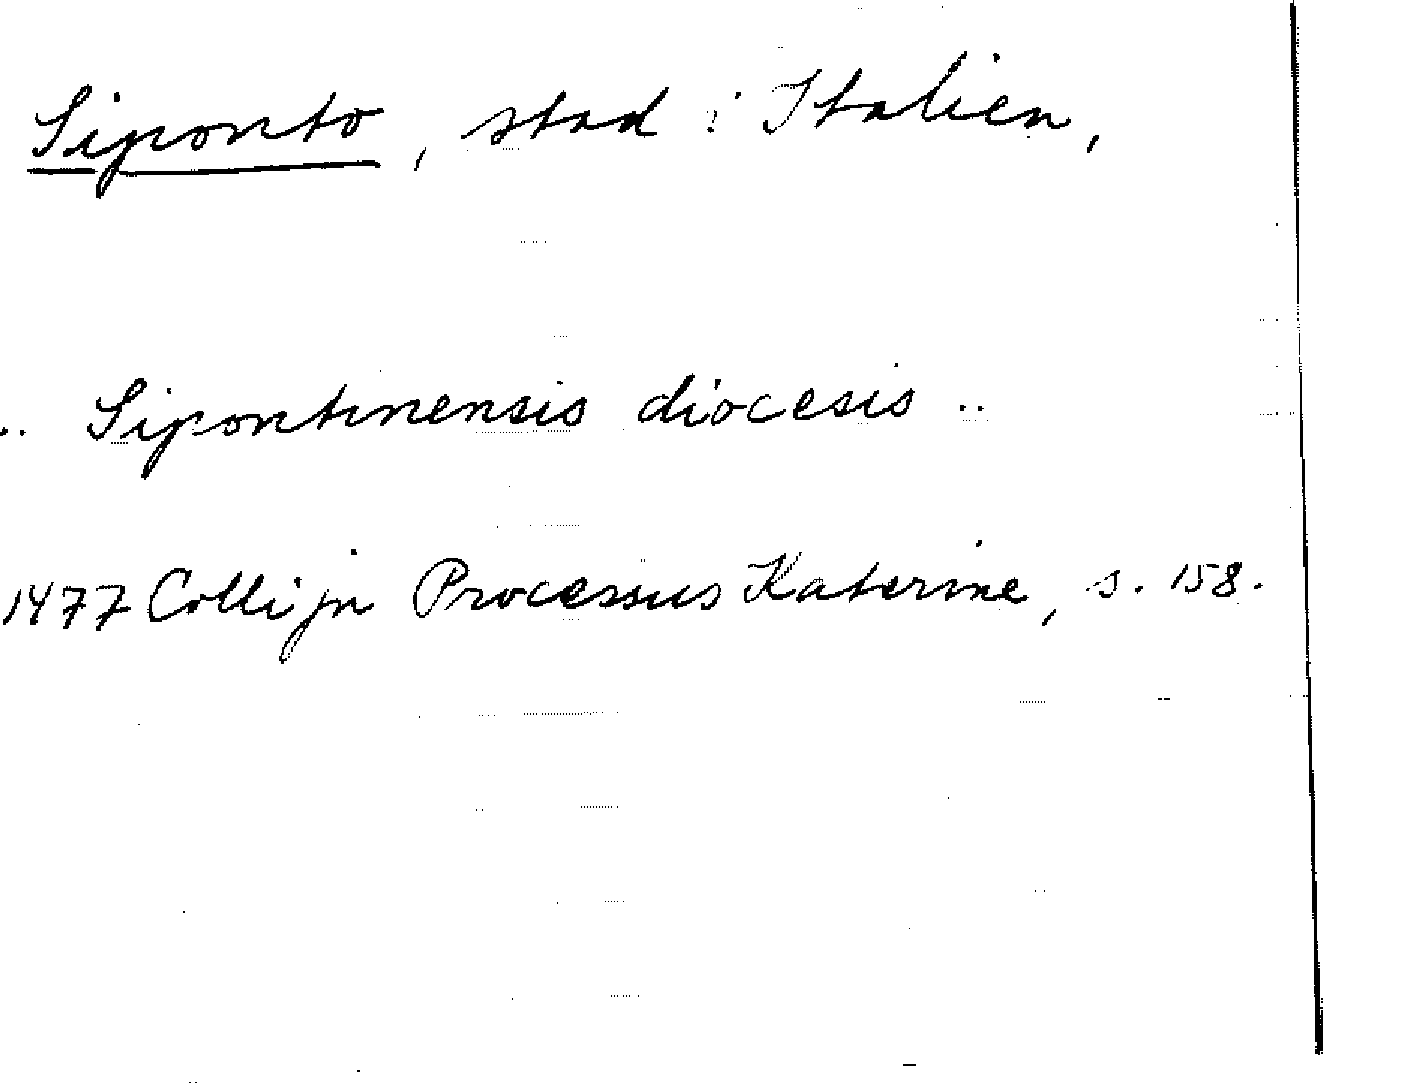 Siponto, stad i Italien,
.. Sipontinensis diocesis ..
1477 Collijn Processus Katerine, s. 158.